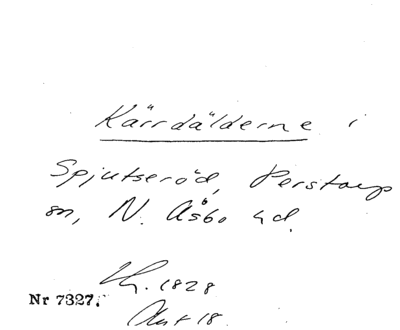 Kärrdälderne i
Spjutseröd, Perstorp
sn, N. Åsbo hd.
1828
Nr 7327.
18